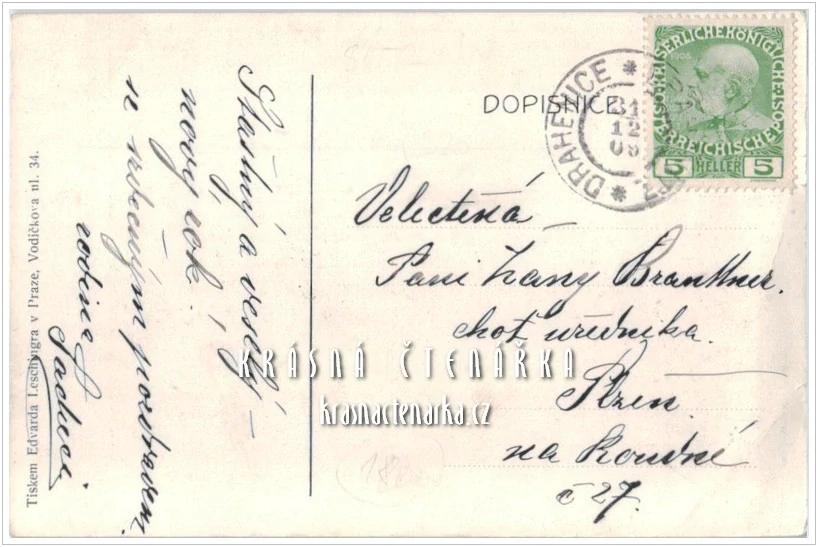 Tiskem Edvarda Leschingra v Praze, Vodičkova ul. 34.
Šťastný a veselý
nový rok!
u srdečným pozdravem
rodina
DOPISNICE
DRAHENICE
31
12
08
KAISERLICHE KÖNIGLICHE ÖSTERREICHISCHE POST
1908
5 HELLER 5
Velectěná
Paní Žany Branttner.
choť úředníka.
Plzen.
na Roudné
č 27.
KRÁSNÁ ČTENÁŘKA
krasnactenarka.cz